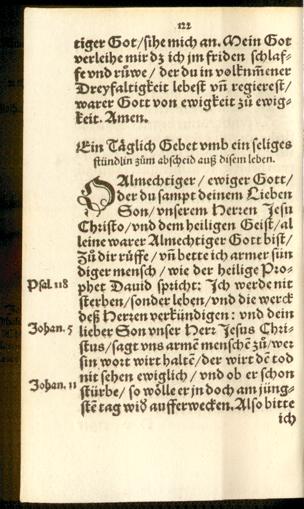 122
tiger Got/sihe mich an. Mein Got
verleihe mir dz ich jm friden schlaf-
fe vnd růwe / der du in volkm̃ener
Dreyfaltigkeit lebest vñ regierest/
warer Gott von ewigkeit zů ewig-
keit. Amen.
Ein Täglich Gebet vmb ein seliges
stündlin zům abscheid auß disem leben.
O Almechtiger / ewiger Gott/
der du sampt deinem Lieben
Son/vnserem Herren Jesu
Christo/vnd dem heiligen Geist/al
leine warer Almechtiger Gott bist/
Zů dir růffe/vñ bette ich armer sün
diger mensch / wie der heilige Pro-
Psal. 118 phet Dauid spricht: Ich werde nit
sterben/sonder leben/vnd die werck
deß Herren verkündigen: vnd dein
Johan. 5 lieber Son vnser Herr Jesus Chri-
stus/sagt vns armẽ menschẽ zů/wer
sin wort wirt haltẽ/der wirt dẽ tod
nit sehen ewiglich / vnd ob er schon
Johan. 11 stürbe/ so wölle er jn doch am jüng-
stẽ tag wid aufferwecken. Also bitte
ich